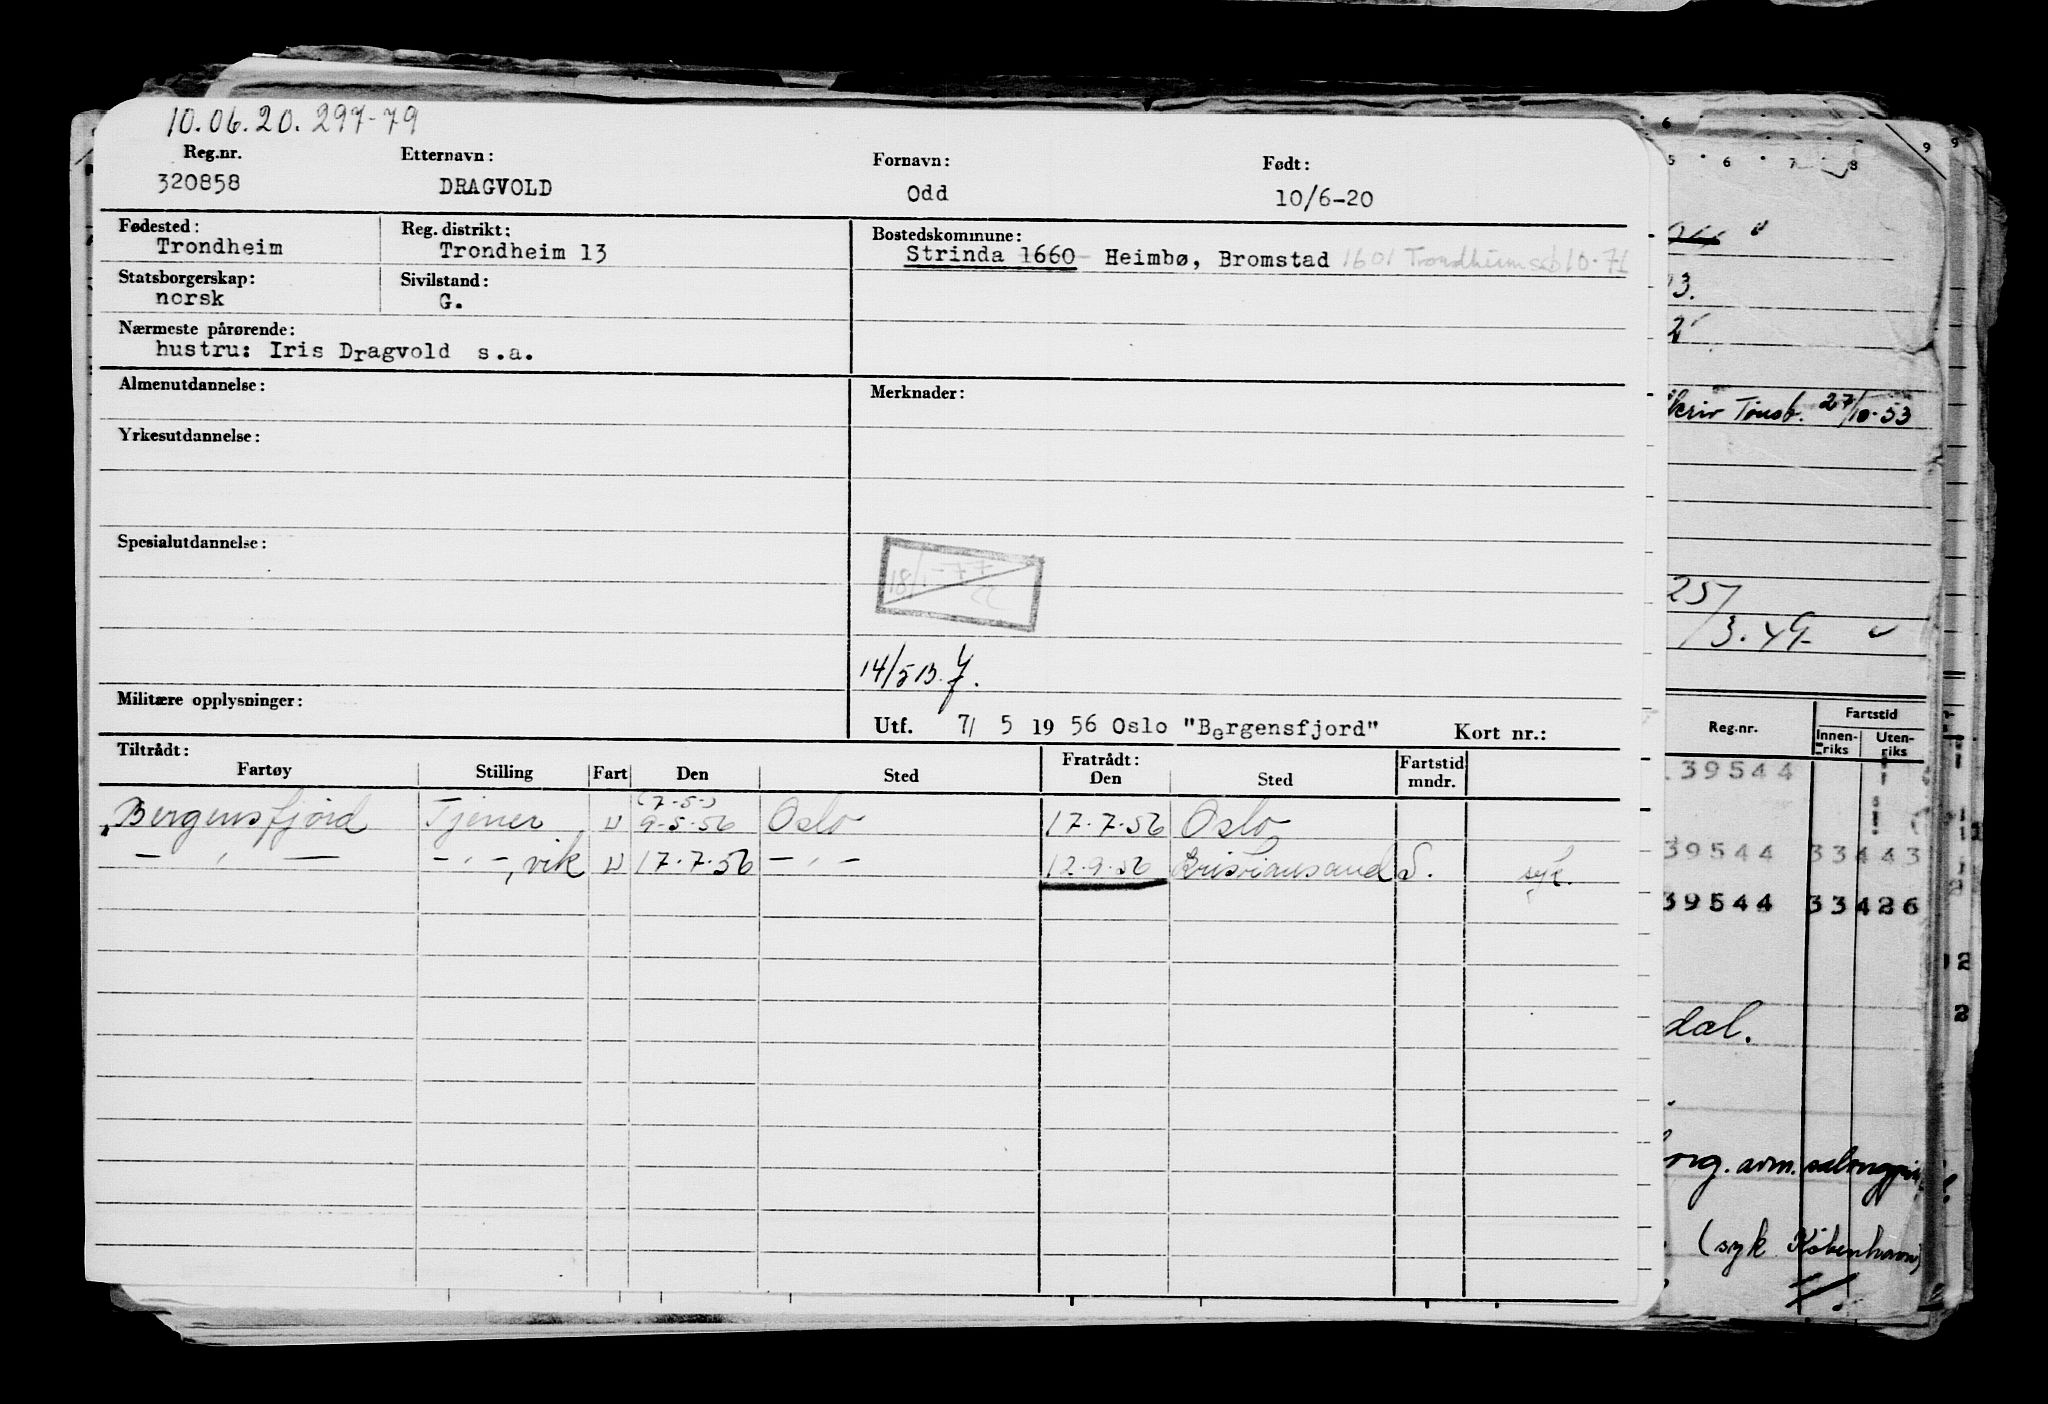 10.06.20.297-79
Reg.nr. Etternavn: Fornavn: Født:
320858 DRAGVOLD Odd 10/6-20
Fødested: Reg. distrikt: Bostedskommune:
Trondheim Trondheim 13 Strinda 1660 - Heimbø, Bromstad 1601 Trondheim ssb 10-71
Statsborgerskap: Sivilstand:
norsk G.
Nærmeste pårørende:
hustru: Iris Dragvold s.a.
Almenutdannelse: Merknader:
Yrkesutdannelse:
Spesialutdannelse:
18/1-77
14/5 13.
Militære opplysninger:
Utf. 7/ 5 19 56 Oslo "Bergensfjord" Kort nr.:
Tiltrådt: Fratrådt: Fartstid
Fartøy Stilling Fart Den Sted Den Sted mndr.
(7-5-)
Bergensfjord Tjener U 9-5-56 Oslo 17-7-56 Oslo
— ' — -'-, vik U 17-7-56 -'- 12-9-56 Kristiansand S. syk.
5 6 7 8 9
6
9
13.
2
skriv Tønsb. 27/10-53
25/
/3.49-
Reg.nr. Fartstid
Innen-riks Uten-riks
139544
39544 33443
39544 33426
2
2
dal.
org. avm.
(syk København)